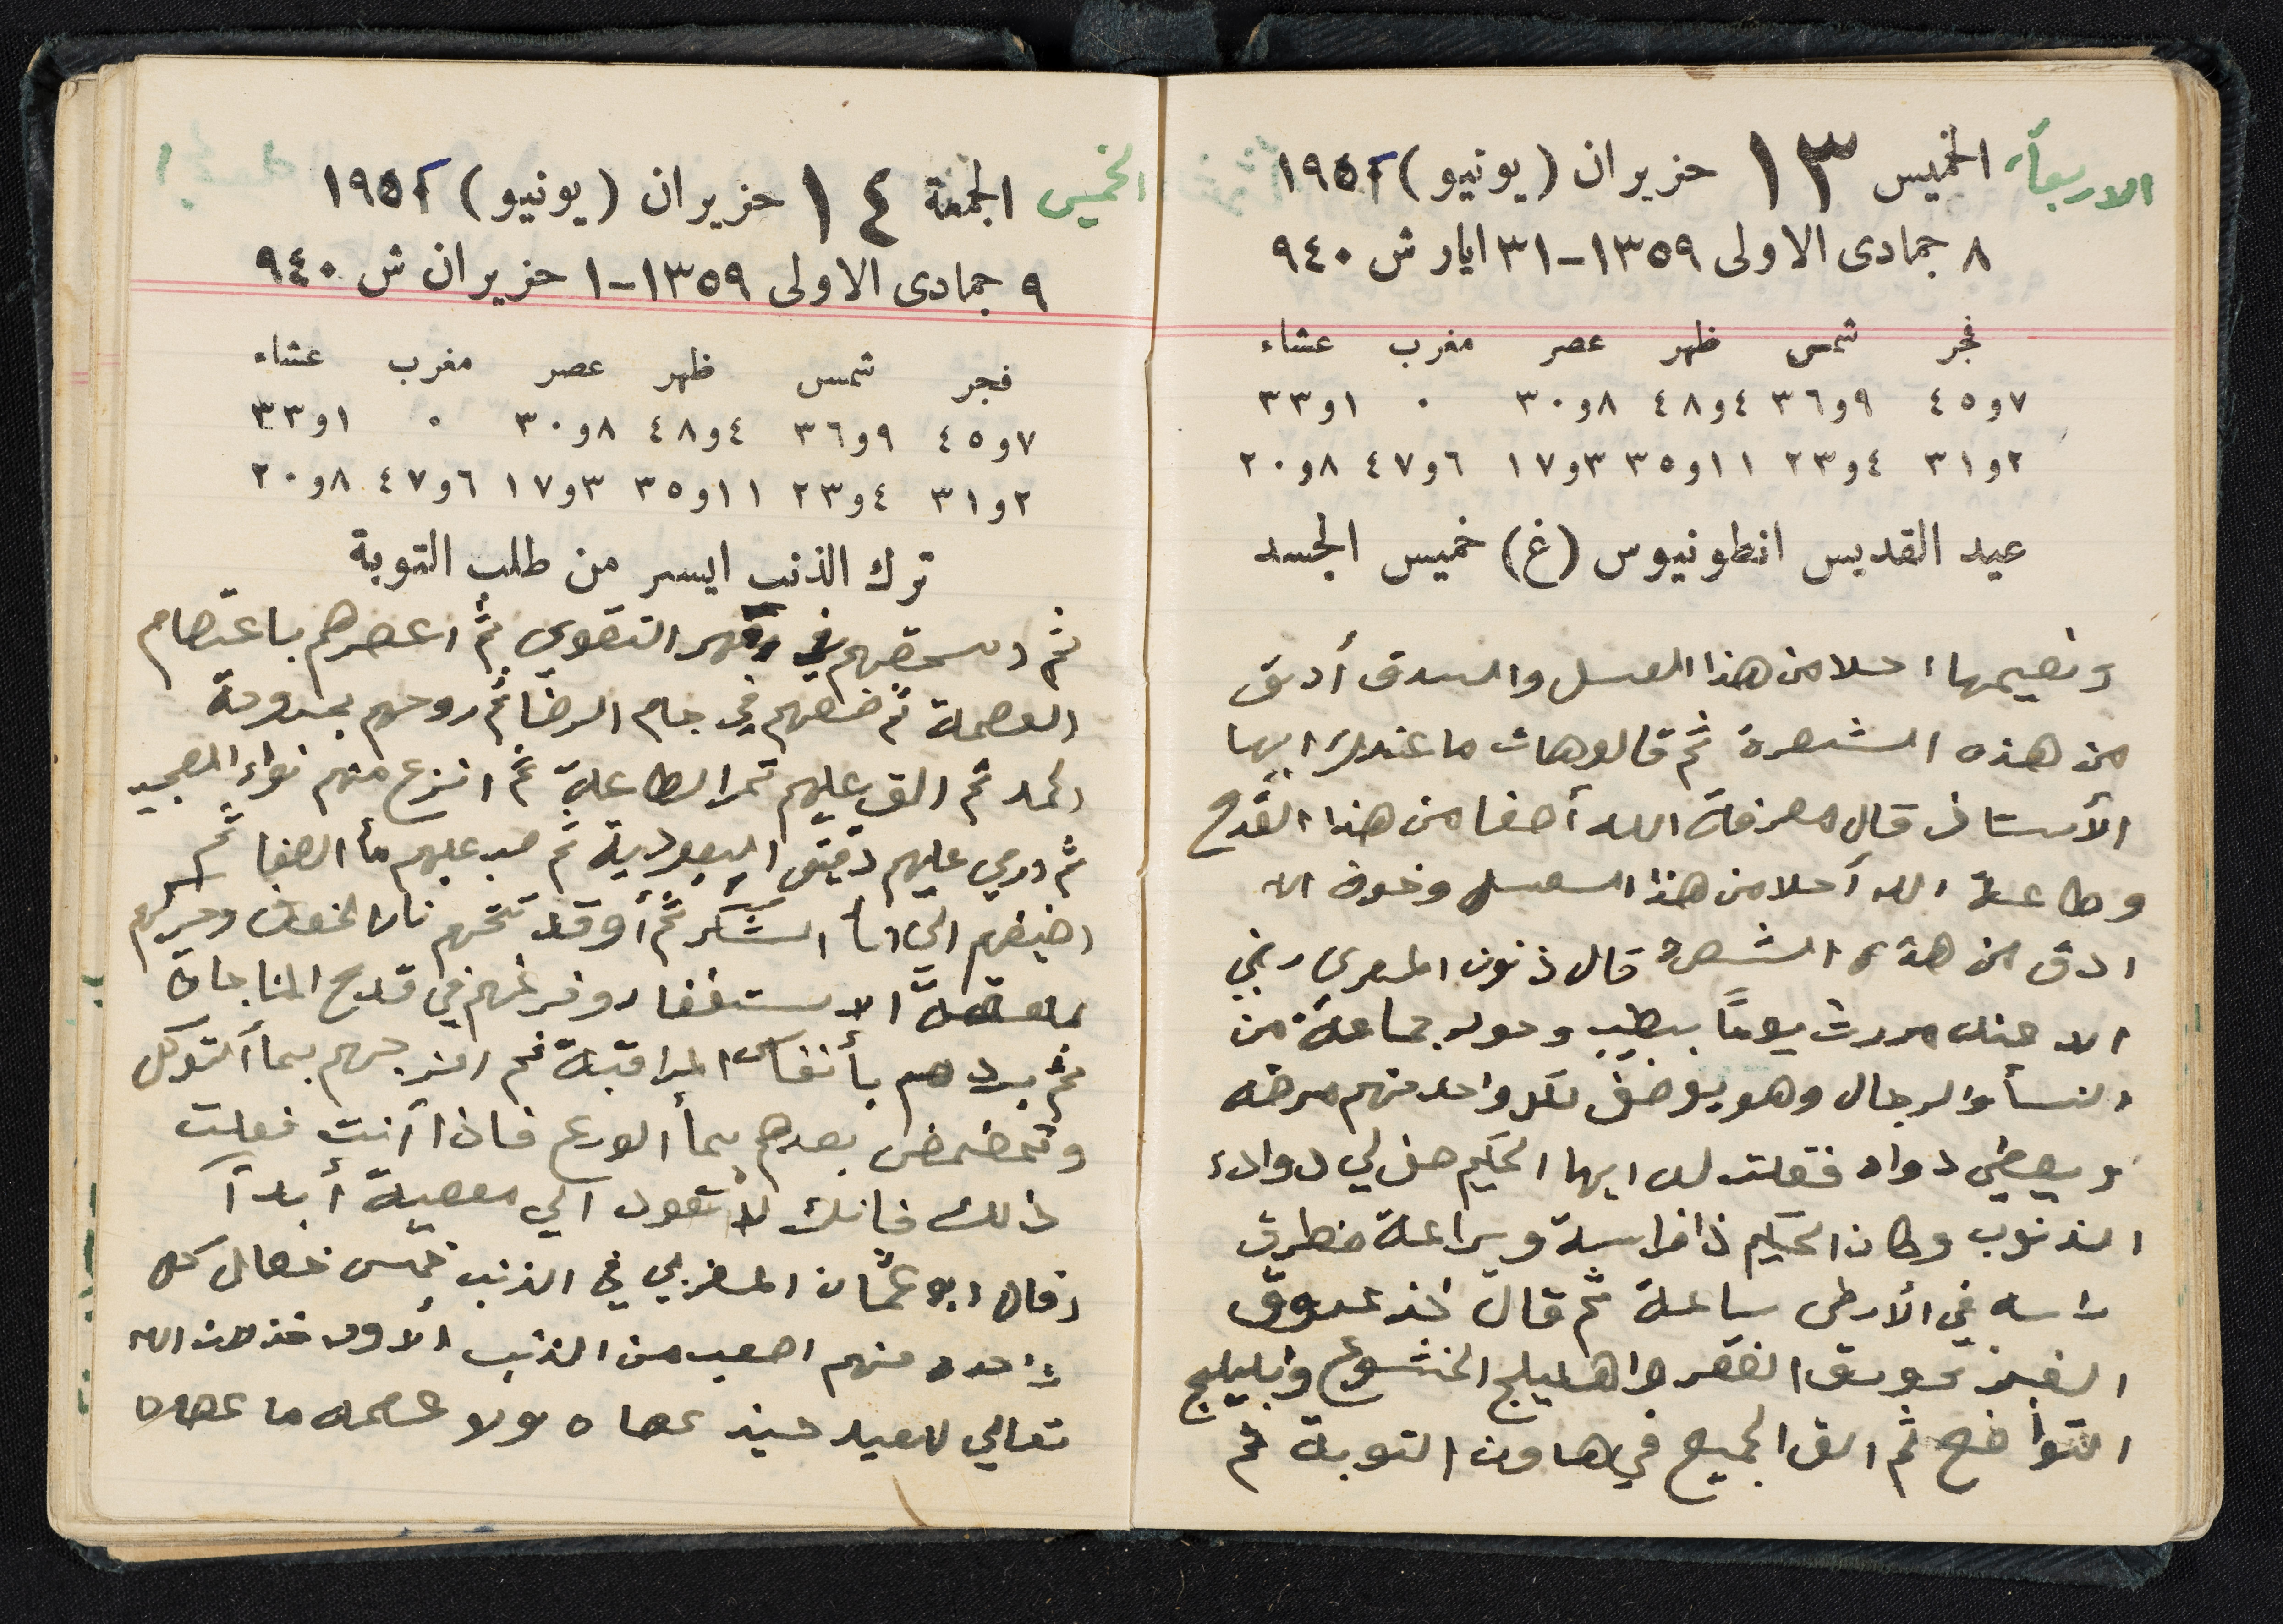 الاربعاء الخميس ١٣ حزيران (يونيو) ١٩٥١
٨ جمادى الاولى ١٣٥٩-٣١ ايار ش ٩٤٠
فجر شمس ظهر عصر مغرب عشاء
٧و٤٥ ٩و٣٦ ٤و٤٨ ٨و٣٠ ٠ ١و٣٣
٢و٣١ ٤و٢٣ ١١و٣٥ ٣و١٧ ٦و٤٧ ٨و٢٠
عيد القديس انطونيوس (غ) خميس الجسد
ونعيمها احلا من هذا العسل وا أدق
من هذه الشعرة ثم قالو هات ما عندك ايها
الأستاذ قال معرفة الله أصفا من هذا القدح
وطاعة الله أحلا من هذا العسل وخوف الله
ادق من هذه الشعرة قال ذنون المصري رضي
الله عنه مررت يوماً بطبيب وحوله جماعة من
النسأ والرجال وهو يوصف لكل واحد منهم مرضه
ويعطي دواء فقلت له ايها الحكيم صف لي دواء
الذنوب وكان الحكيم ذا فراسة وبراعة فطرق
راسه في الأرض ساعة ثم قال خذ عروق
الفقر واهليلج الخشوع وبليلج
التواضع ثم الق الجميع في هاون التوبة ثم
الخميس الجمعة ١٤ حزيران (يونيو) ١٩٥١
٩ جمادى الاولى ١٣٥٩-١ حزيران ش ٩٤٠
فجر شمس ظهر عصر مغرب عشاء
٧و٤٥ ٩و٣٦ ٤و٤٨ ٨و٣٠ ٠ ١و٣٣
٢و٣١ ٤و٢٣ ١١و٣٥ ٣و١٧ ٦و٤٧ ٨و٢٠
ترك الذنب ايسر من طلب التوبة
ثم اسحقهم في التقوى ثم اعصرهم باعتصام
العصمة ثم ضعهم في جام الرضا ثم روحهم بمروحة
الحمد ثم الق عليهم تمر الطاعة ثم انزع منهم نواء
ثم ارمي عليهم دقيق العبودية ثم صب عليهم مأ الصفا ثم
اضيفهم الى الشكر ثم أوقد تحتهم نار الخوف وحركهم
بملعقة الاستغفار وفرغهم في قدح المناجات
ثم بردهم بأنفاس المراقبة ثم امزجهم بمأ التوكل
وتمضمض بعدهم بمأ الورع فاذا أنت فعلت
ذلك فانك لا تعود الي معصية أبداً
وقال ابو عثمان المغربي في الذنب خمس خصال كل
واحده منهم اصعب من الذنب الأول خذلان الله
تعالي للعبد حيث عصاه ولو عصمه ما عصاه